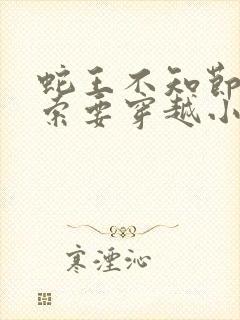 蛇王不知节
索要穿越小
寒湮沁